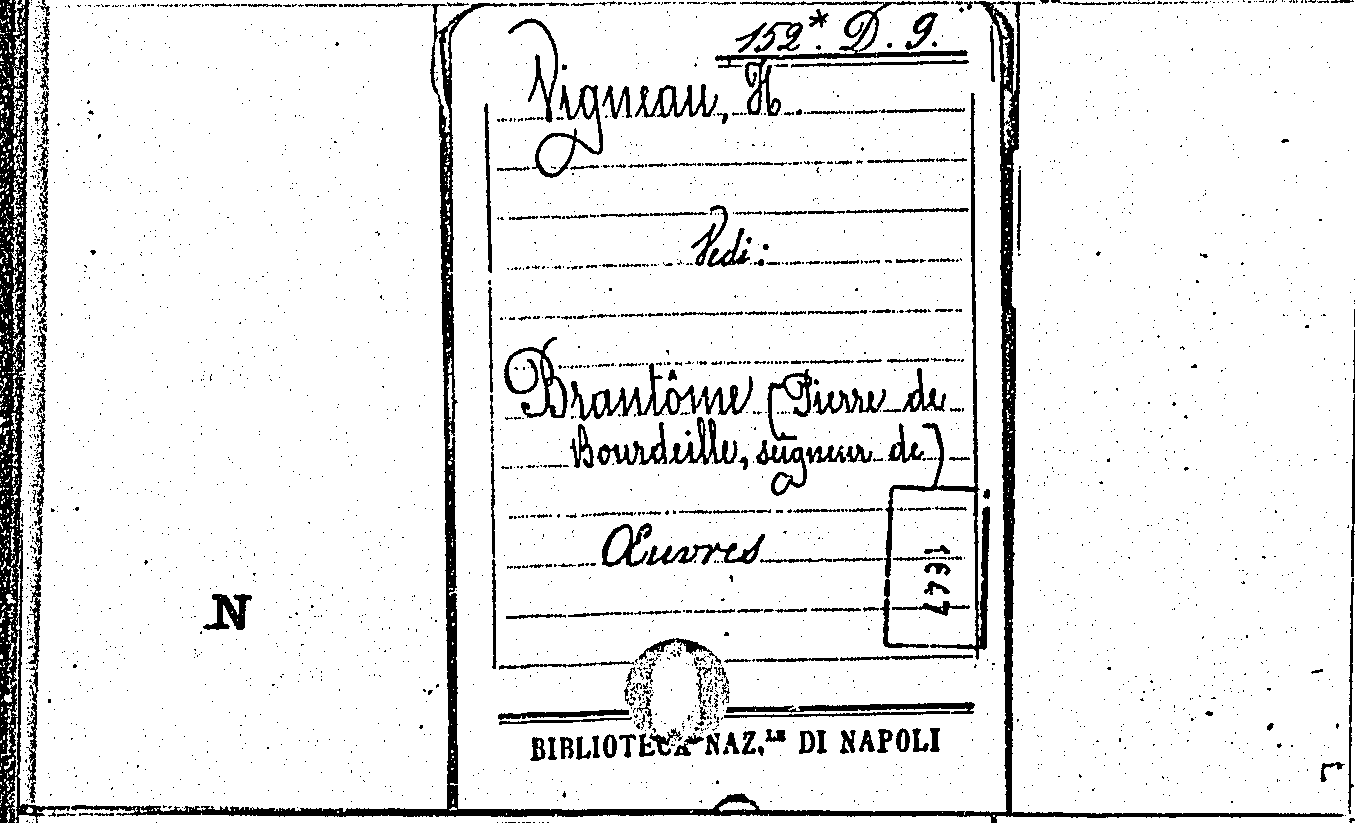 152*. D. 9.
Vigneau, H.
Vedi:
Brantôme (Pierre de
Bourdeille, seigneur de)
Œuvres
1947
N
BIBLIOTECA NAZ.LE DI NAPOLI